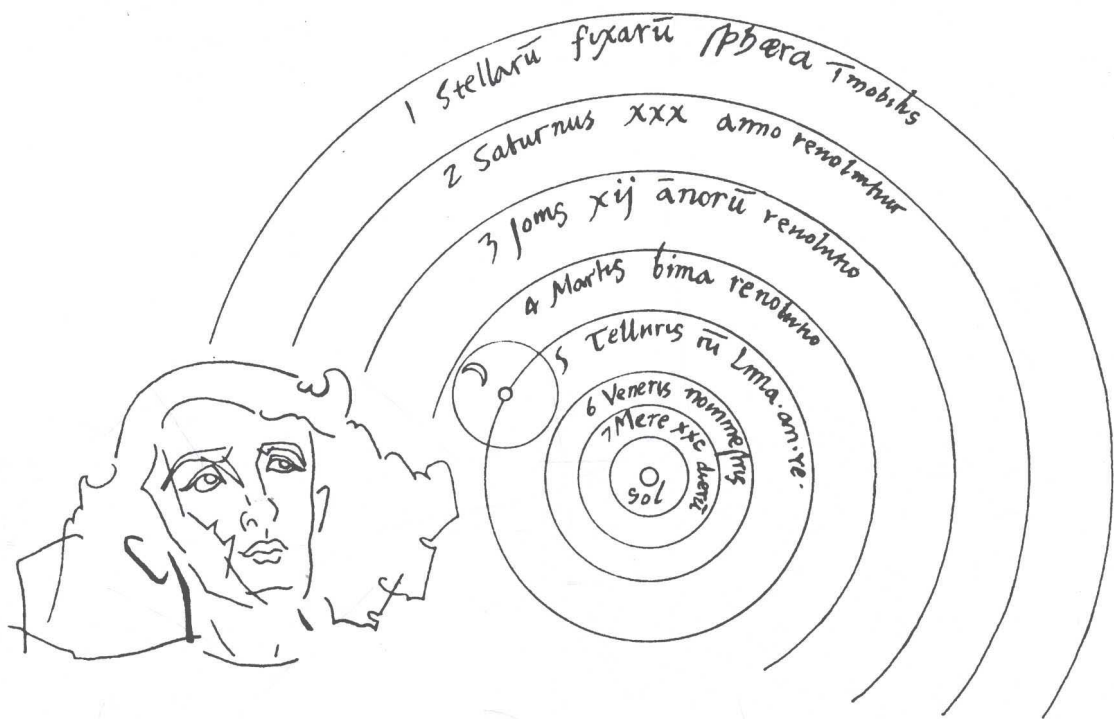 1 Stellarū fixarū sphæra īmobilis
2 Saturnus xxx anno reuoluitur
3 Jouis xij ānorū reuolutio
4 Martis bima reuolutio
5 Telluris cū Luna·an·re·
6 Veneris nonimestris
7 Merc xxc dierū
Sol